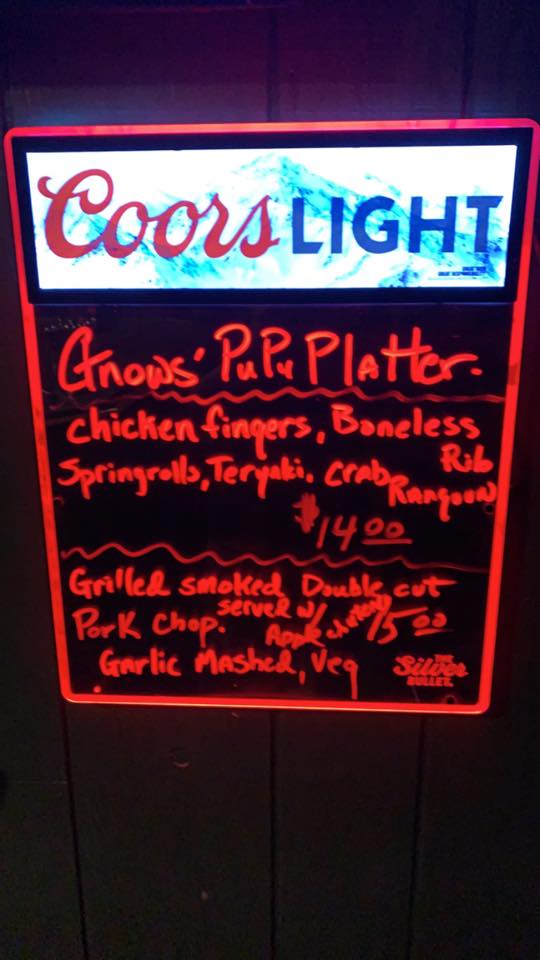 Coors LIGHT
Gnows' PuPu Platter.
chicken fingers, Boneless
Rib
Springrolls, Teryaki. crab
Rangoon
$14 00
Grilled smoked Double cut
Pork Chop. served w/
Apple chutney 15 00
Garlic Mashed, Veg
THE
Silver
BULLET.